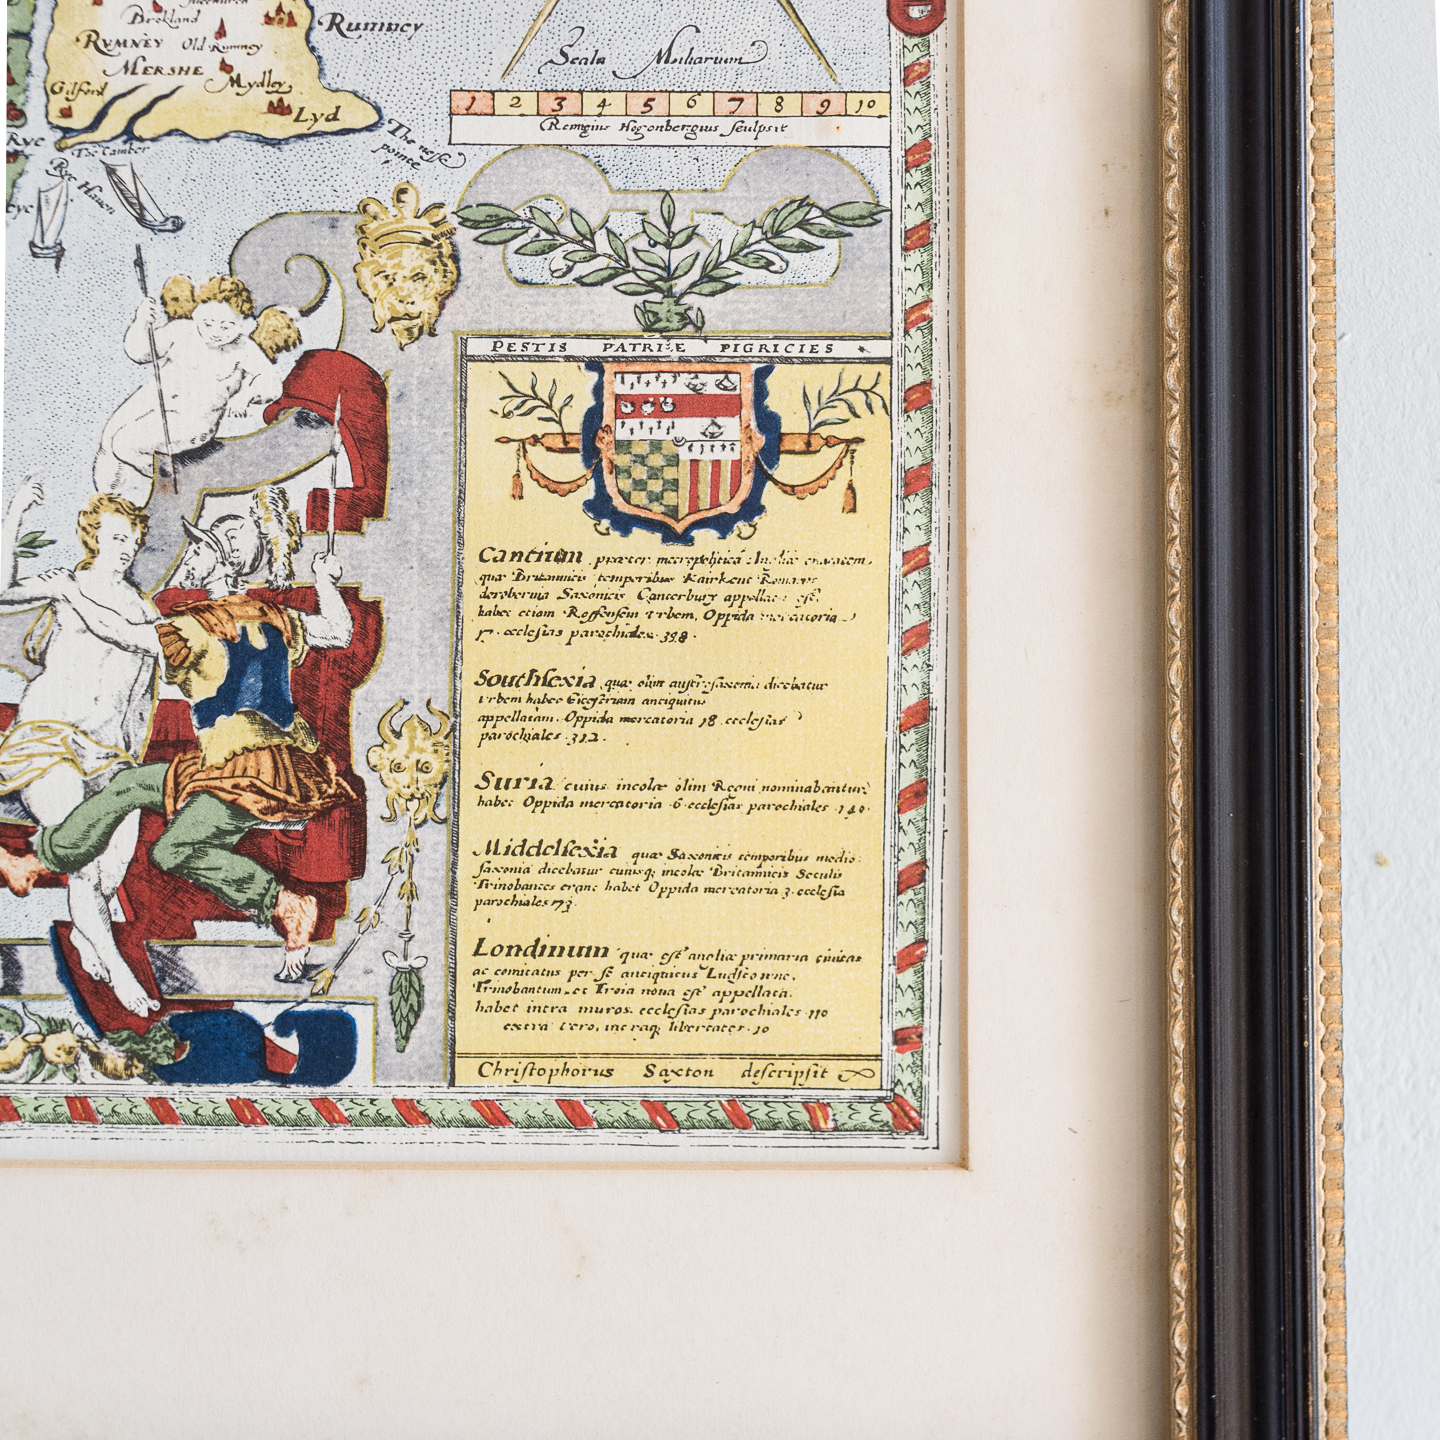 Brokland
Rumney
RVMNEY Old Rumney
MERSHE
Mydley
Gilford
Lyd
Rye
The Camber
Rye Haven
The nesse
pointe
Scala Miliarium
1 2 3 4 5 6 7 8 9 10
Remigius Hogenbergius sculpsit
PESTIS PATRIÆ PIGRICIES
Cantium præter metropoliticā Angliæ
quæ Britannicis temporibus Kairkent Romanis
derobernia Saxonicis Canterbury appellata est,
habet etiam Roffensem vrbem, Oppida mercatoria
17. ecclesias parochiales. 398.
Southsexia quæ olim austrosaxonia dicebatur
vrbem habet Cicestriam antiquitus
appellatam. Oppida mercatoria 18. ecclesias
parochiales. 312.
Suria cuius incolæ olim Regni nominabantur
habet Oppida mercatoria 6 ecclesias parochiales 140.
Middelsexia quæ Saxonicis temporibus medio
saxonia dicebatur cuiusq; incolæ Britannicis Seculis
Trinobantes erant habet Oppida mercatoria 3. ecclesia
parochiales 73.
Londinum quæ est angliæ primaria civitas
ac comitatus per se antiquitus Ludstowne,
Trinobantum et Troia noua est appellata.
habet intra muros. ecclesias parochiales 110
extra vero, intraq; libertates. 10
Christophorus Saxton descripsit